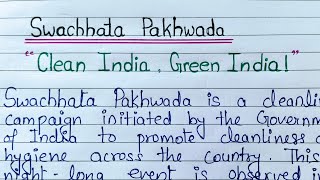 Swachhata Pakhwada
"Clean India, Green India!"
Swachhata Pakhwada is a
campaign initiated by the
of India to promote cleanliness
hygiene across the country. This
night-long event is observed